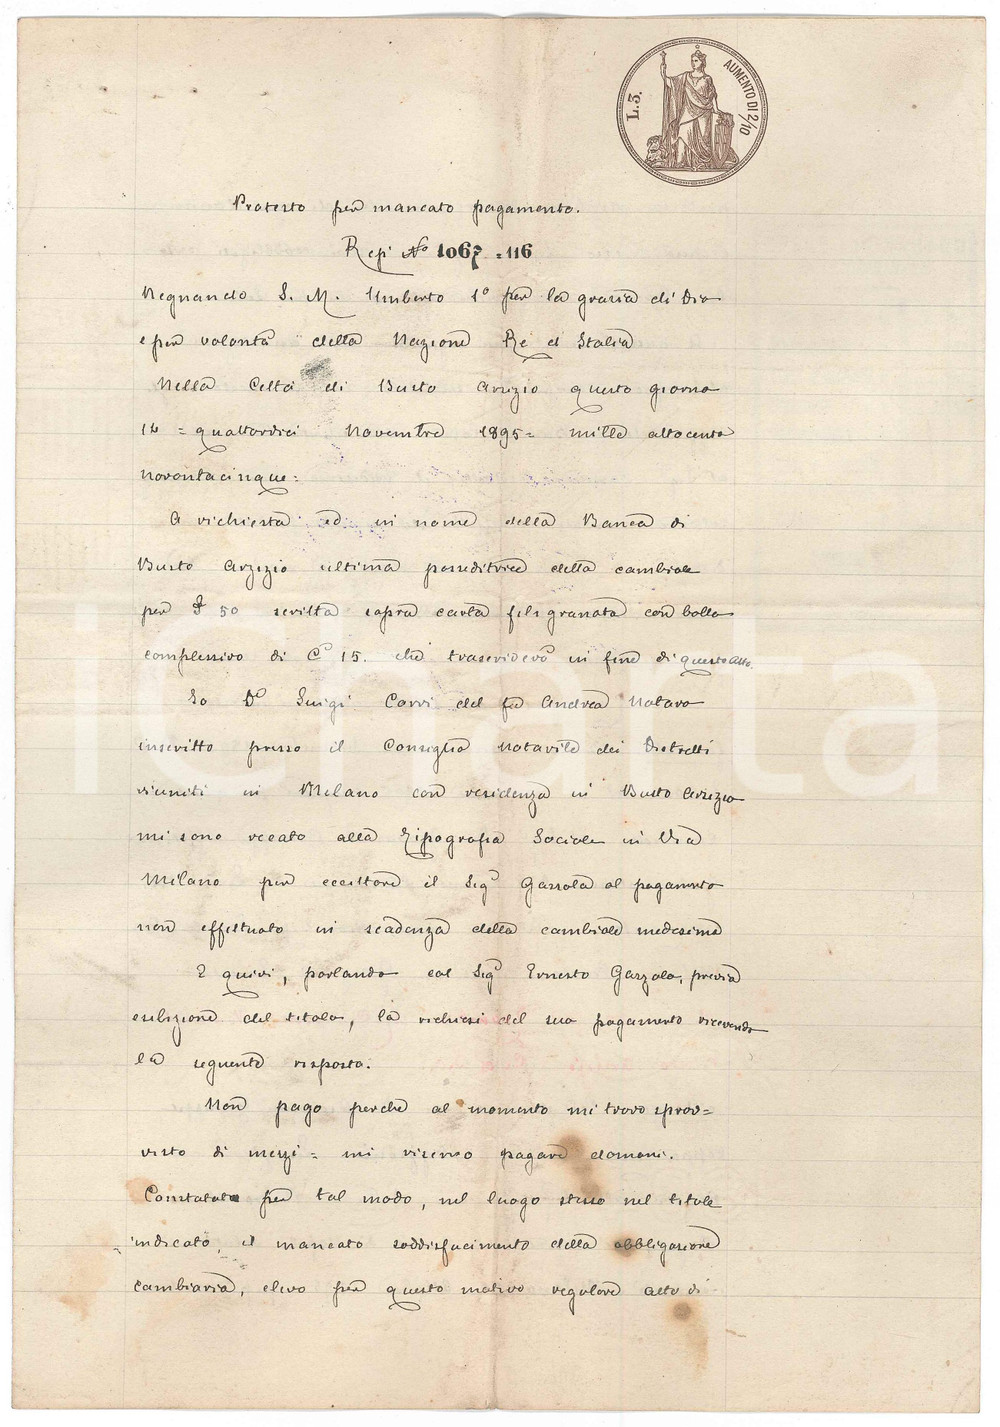 L. 3.
AUMENTO DI 2/10
Protesto per mancato pagamento.
Rep. No 1067 = 116
Regnando S. M. Umberto 1º per la grazia di Dio
e per volontà della Nazione Re d'Italia
Nella Città di Busto Arsizio questo giorno
14 = quattordici Novembre 1895 = mille ottocento
novantacinque =
A richiesta ed in nome della Banca di
Busto Arsizio ultima posseditrice della cambiale
per £ 50 scritta sopra carta filigranata con bollo
complessivo di C. 15. che trascriverò in fine di questo atto.
Io Dr Luigi Corvi del fu Andrea Notaro
inscritto presso il Consiglio notarile dei Distretti
riuniti in Milano con residenza in Busto Arsizio
mi sono recato alla Tipografia Sociale in Via
Milano per eccittare il Sigr Gazzola al pagamento
non effettuato in scadenza della cambiale medesima
E quivi, parlando col Sigr Ernesto Gazzola, previa
esibizione del titolo, la richiesi del suo pagamento ricevendo
la seguente risposta.
Non pago perché al momento mi trovo sprov=
visto di mezzi = mi riservo pagare domani.
Constatato per tal modo, nel luogo stesso nel titolo
indicato, il mancato soddisfacimento della obbligazione
cambiaria, elevo per questo motivo regolare atto di
icharta